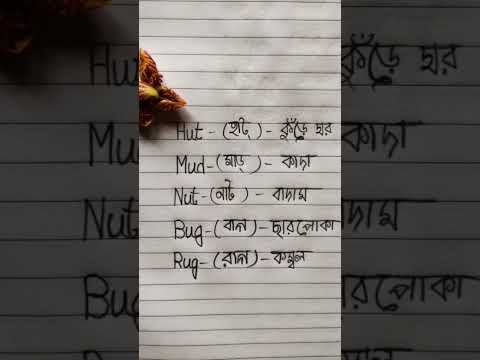 Hut - (হাট) - কুঁড়ে ঘর
Mud - (মাড্) - কাদা
Nut - (নাট) - বাদাম
Bug - (বাগ) - ছারপোকা
Rug - (রাগ) - কম্বল